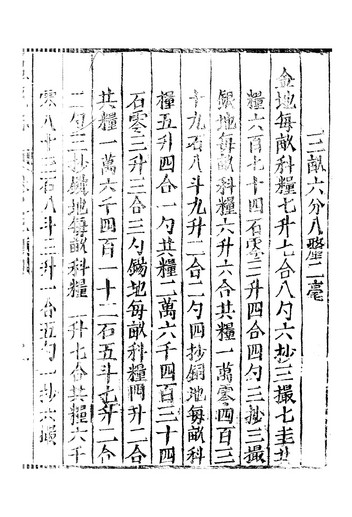 三畝六分八釐二毫
金地每畝科糧七升七合八勺六抄三撮七圭共
糧六百七十四石零三升四合四勺三抄三撮
銀地每畝科糧六升六合共糧一萬零四百三
十九石八斗九升二合二勺四抄銅地每畝科
糧五升四合一勺共糧二萬六千四百三十四
石零三升三合三勺錫地每畝科糧四升二合
共糧一萬六千四百一十二石五斗七升二合
二勺三抄鐵地每畝科糧升七合共糧六千
零八十三石八斗三升一合五勺一抄六撮